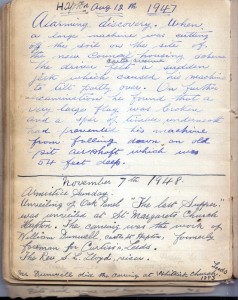 HALTON Aug 12th 1947
Alarming discovery. When
a large machine was cutting
off the soil on the site of
the new Council housing scheme
the drivers felt a sudden
jerk which caused his machine
to tilt partly over. On further
examination he found that a
very large flag was broken
and a spar of timber underneath
had prevented his machine
from falling down an old
pit airshaft which was
54 feet deep.
November 7th 1948.
Armistice Sunday
Unveiling of Oak Panel "The last Supper"
was unveiled at St Margarets Church
The carving was the work of
William Dunwell
foreman for Leeds.
The Rev S. L. Lloyd, vicar.
Mr Dunwell did the carving at Church